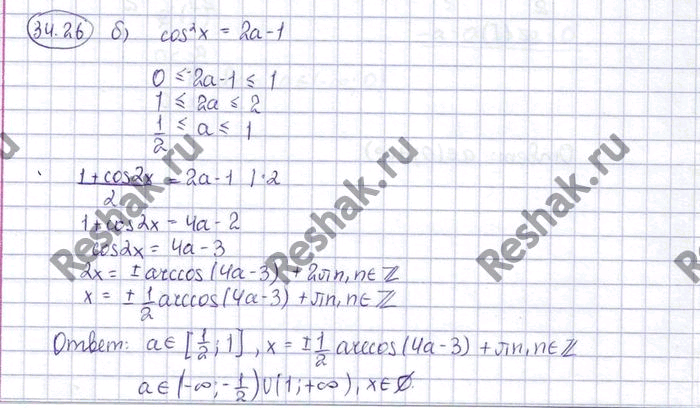 34.26 б) cos²x = 2a-1
0 ≤ 2a-1 ≤ 1
1 ≤ 2a ≤ 2
1/2 ≤ a ≤ 1
(1+cos2x)/2 = 2a-1 |·2
1+cos2x = 4a-2
cos2x = 4a-3
2x = ± arccos(4a-3) + 2πn, n∈ℤ
x = ± 1/2 arccos(4a-3) + πn, n∈ℤ
Ответ: a∈[1/2; 1], x = ± 1/2 arccos(4a-3) + πn, n∈ℤ
a∈(-∞; -1/2)∪(1; +∞), x∈∅.
Reshak.ru
Reshak.ru
Reshak.ru